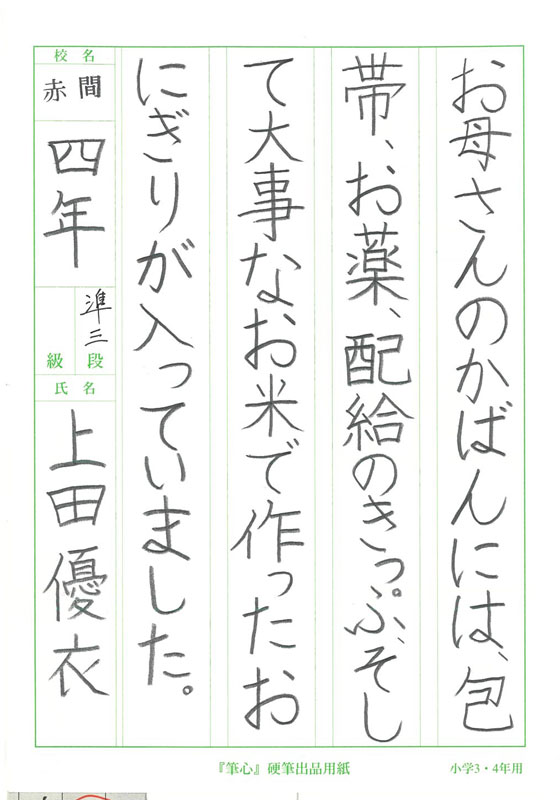 お母さんのかばんには、包
帯、お薬、配給のきっぷ、そし
て大事なお米で作ったお
にぎりが入っていました。
校名
赤間
四年
準三
段
級
氏名
上田優衣
『筆心』硬筆出品用紙
小学3・4年用